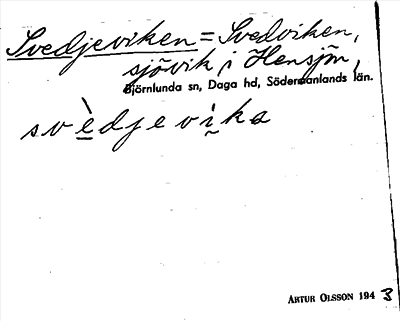 Svedjeviken = Svedviken,
sjövik i Hensjön,
Björnlunda sn, Daga hd, Södermanlands län.
svèdjevìka
ARTUR OLSSON 1943